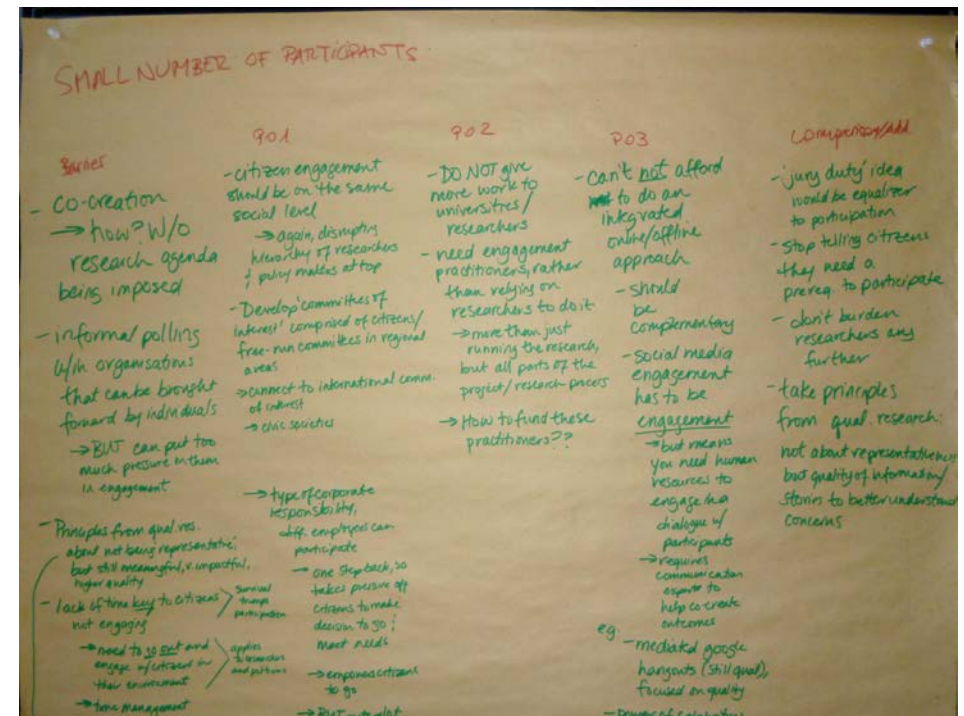 SMALL NUMBER OF PARTICIPANTS
Barrier
- CO-CREATION
→ how? W/O
research agenda
being imposed
- informal polling
w/in organisations
that can be brought
forward by individuals
→ BUT can put too
much pressure on them
in engagement
- Principles from qual. res.
about not being representative,
but still meaningful, v. impactful,
higher quality
- lack of time key to citizens
not engaging
survival
trumps
participation
→ need to go out and
engage w/citizens in
their environment
applies
to researchers
and
→ time management
901
- citizen engagement
should be on the same
social level
→ again, disrupting
hierarchy of researchers
& policy makers at top
- Develop 'committees of
interest' comprised of citizens/
free-run committees in regional
areas
→ connect to international comm.
of interest
→ civic societies
→ type of corporate
responsibility,
diff. employees can
participate
→ one step back, so
takes pressure off
citizens to make
decision to go &
meet needs
→ empowers citizens
to go
→ BUT
902
- DO NOT give
more work to
universities/
researchers
- need engagement
practitioners, rather
than relying on
researchers to do it
→ more than just
running the research,
but all parts of the
project/research process
→ How to fund these
practitioners??
P03
- can't not afford
to do an
integrated
online/offline
approach
- should
be
complementary
- social media
engagement
has to be
engagement
→ but means
you need human
resources to
engage in a
dialogue w/
participants
→ requires
communication
experts to
help co-create
outcomes
eg. - mediated google
hangouts (still qual),
focused on quality
- Power of
Comparison/add
- 'jury duty' idea
would be equalizer
to participation
- stop telling citizens
they need a
prereq. to participate
- don't burden
researchers any
further
- take principles
from qual. research:
not about representativeness
but quality of information/
stories to better understand
concerns